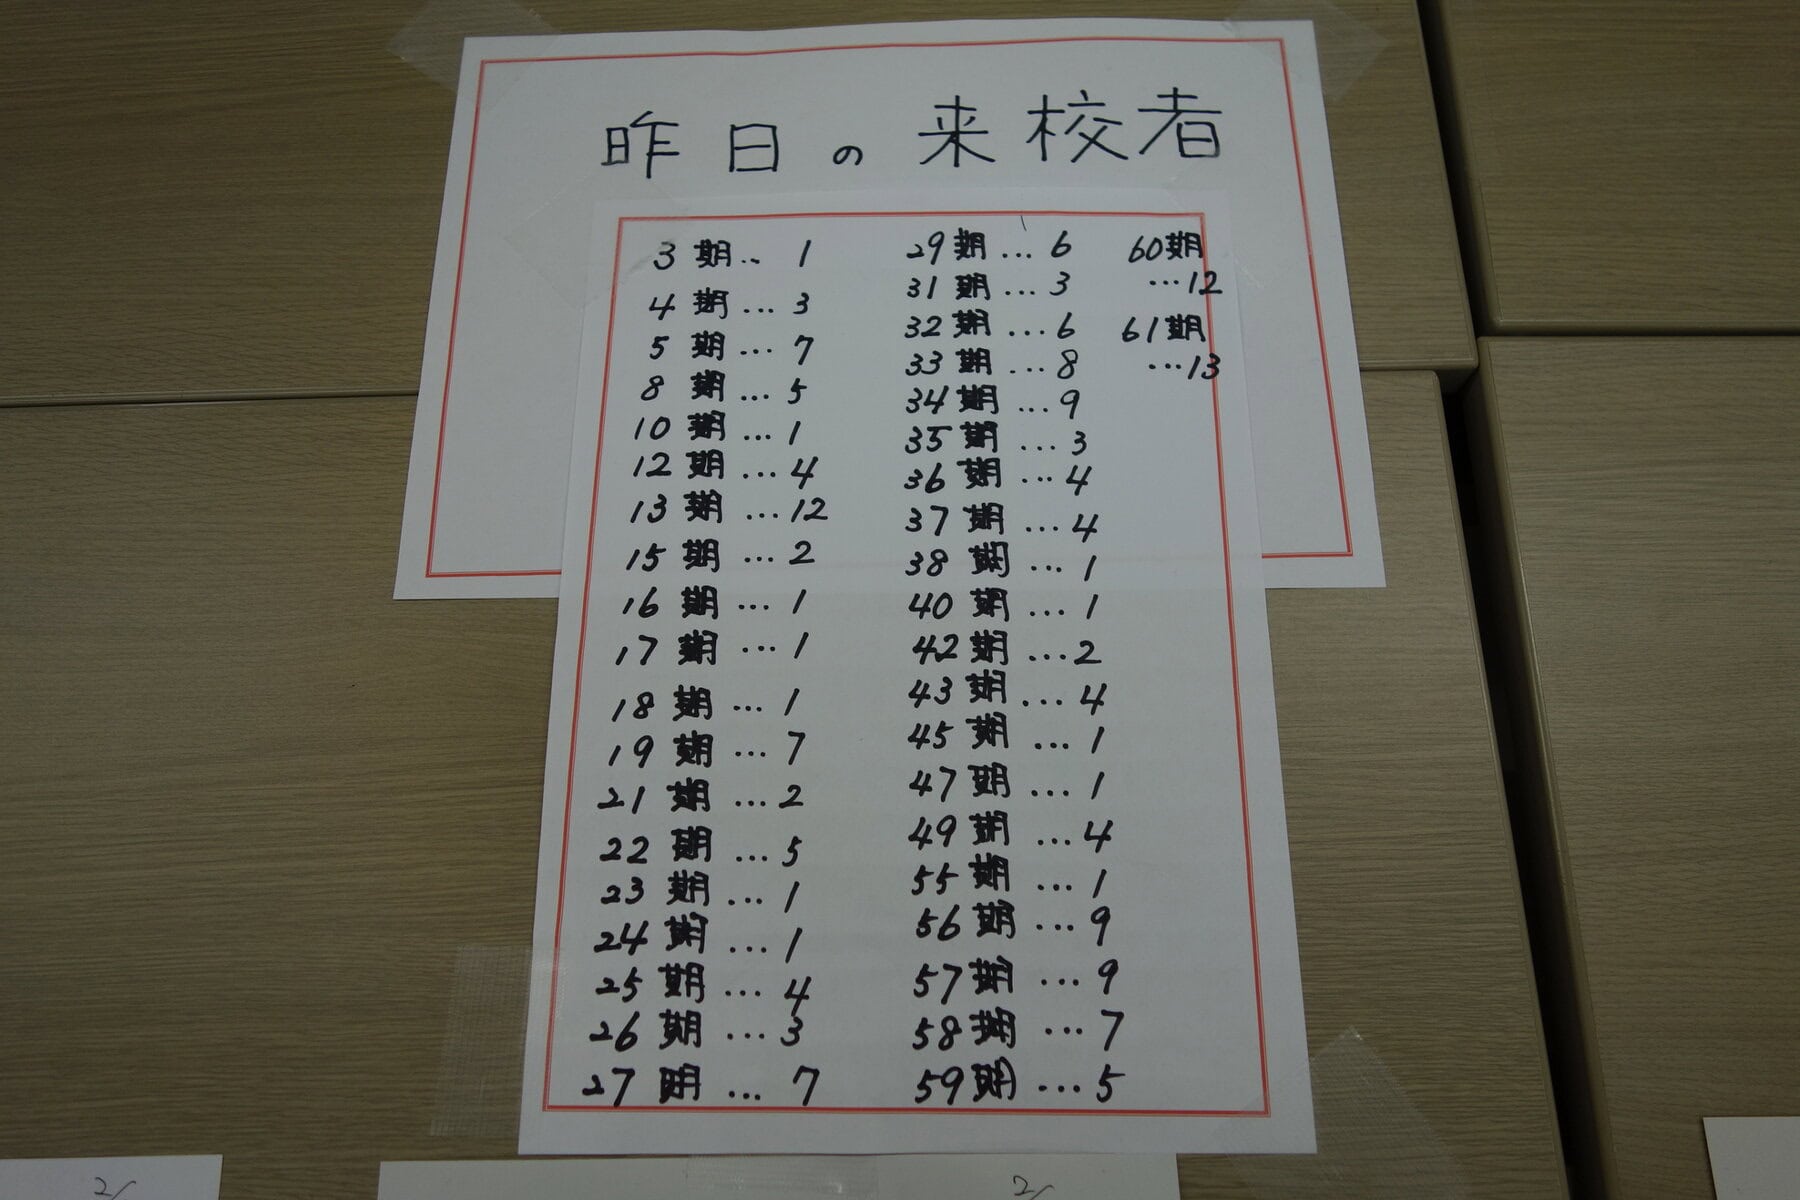 昨日の来校者
3期… 1
4期… 3
5期… 7
8期… 5
10期… 1
12期… 4
13期… 12
15期… 2
16期… 1
17期… 1
18期… 1
19期… 7
21期… 2
22期… 5
23期… 1
24期… 1
25期… 4
26期… 3
27期… 7
29期… 6
31期… 3
32期… 6
33期… 8
34期… 9
35期… 3
36期… 4
37期… 4
38期… 1
40期… 1
42期… 2
43期… 4
45期… 1
47期… 1
49期… 4
55期… 1
56期… 9
57期… 9
58期… 7
59期… 5
60期
…12
61期
…13